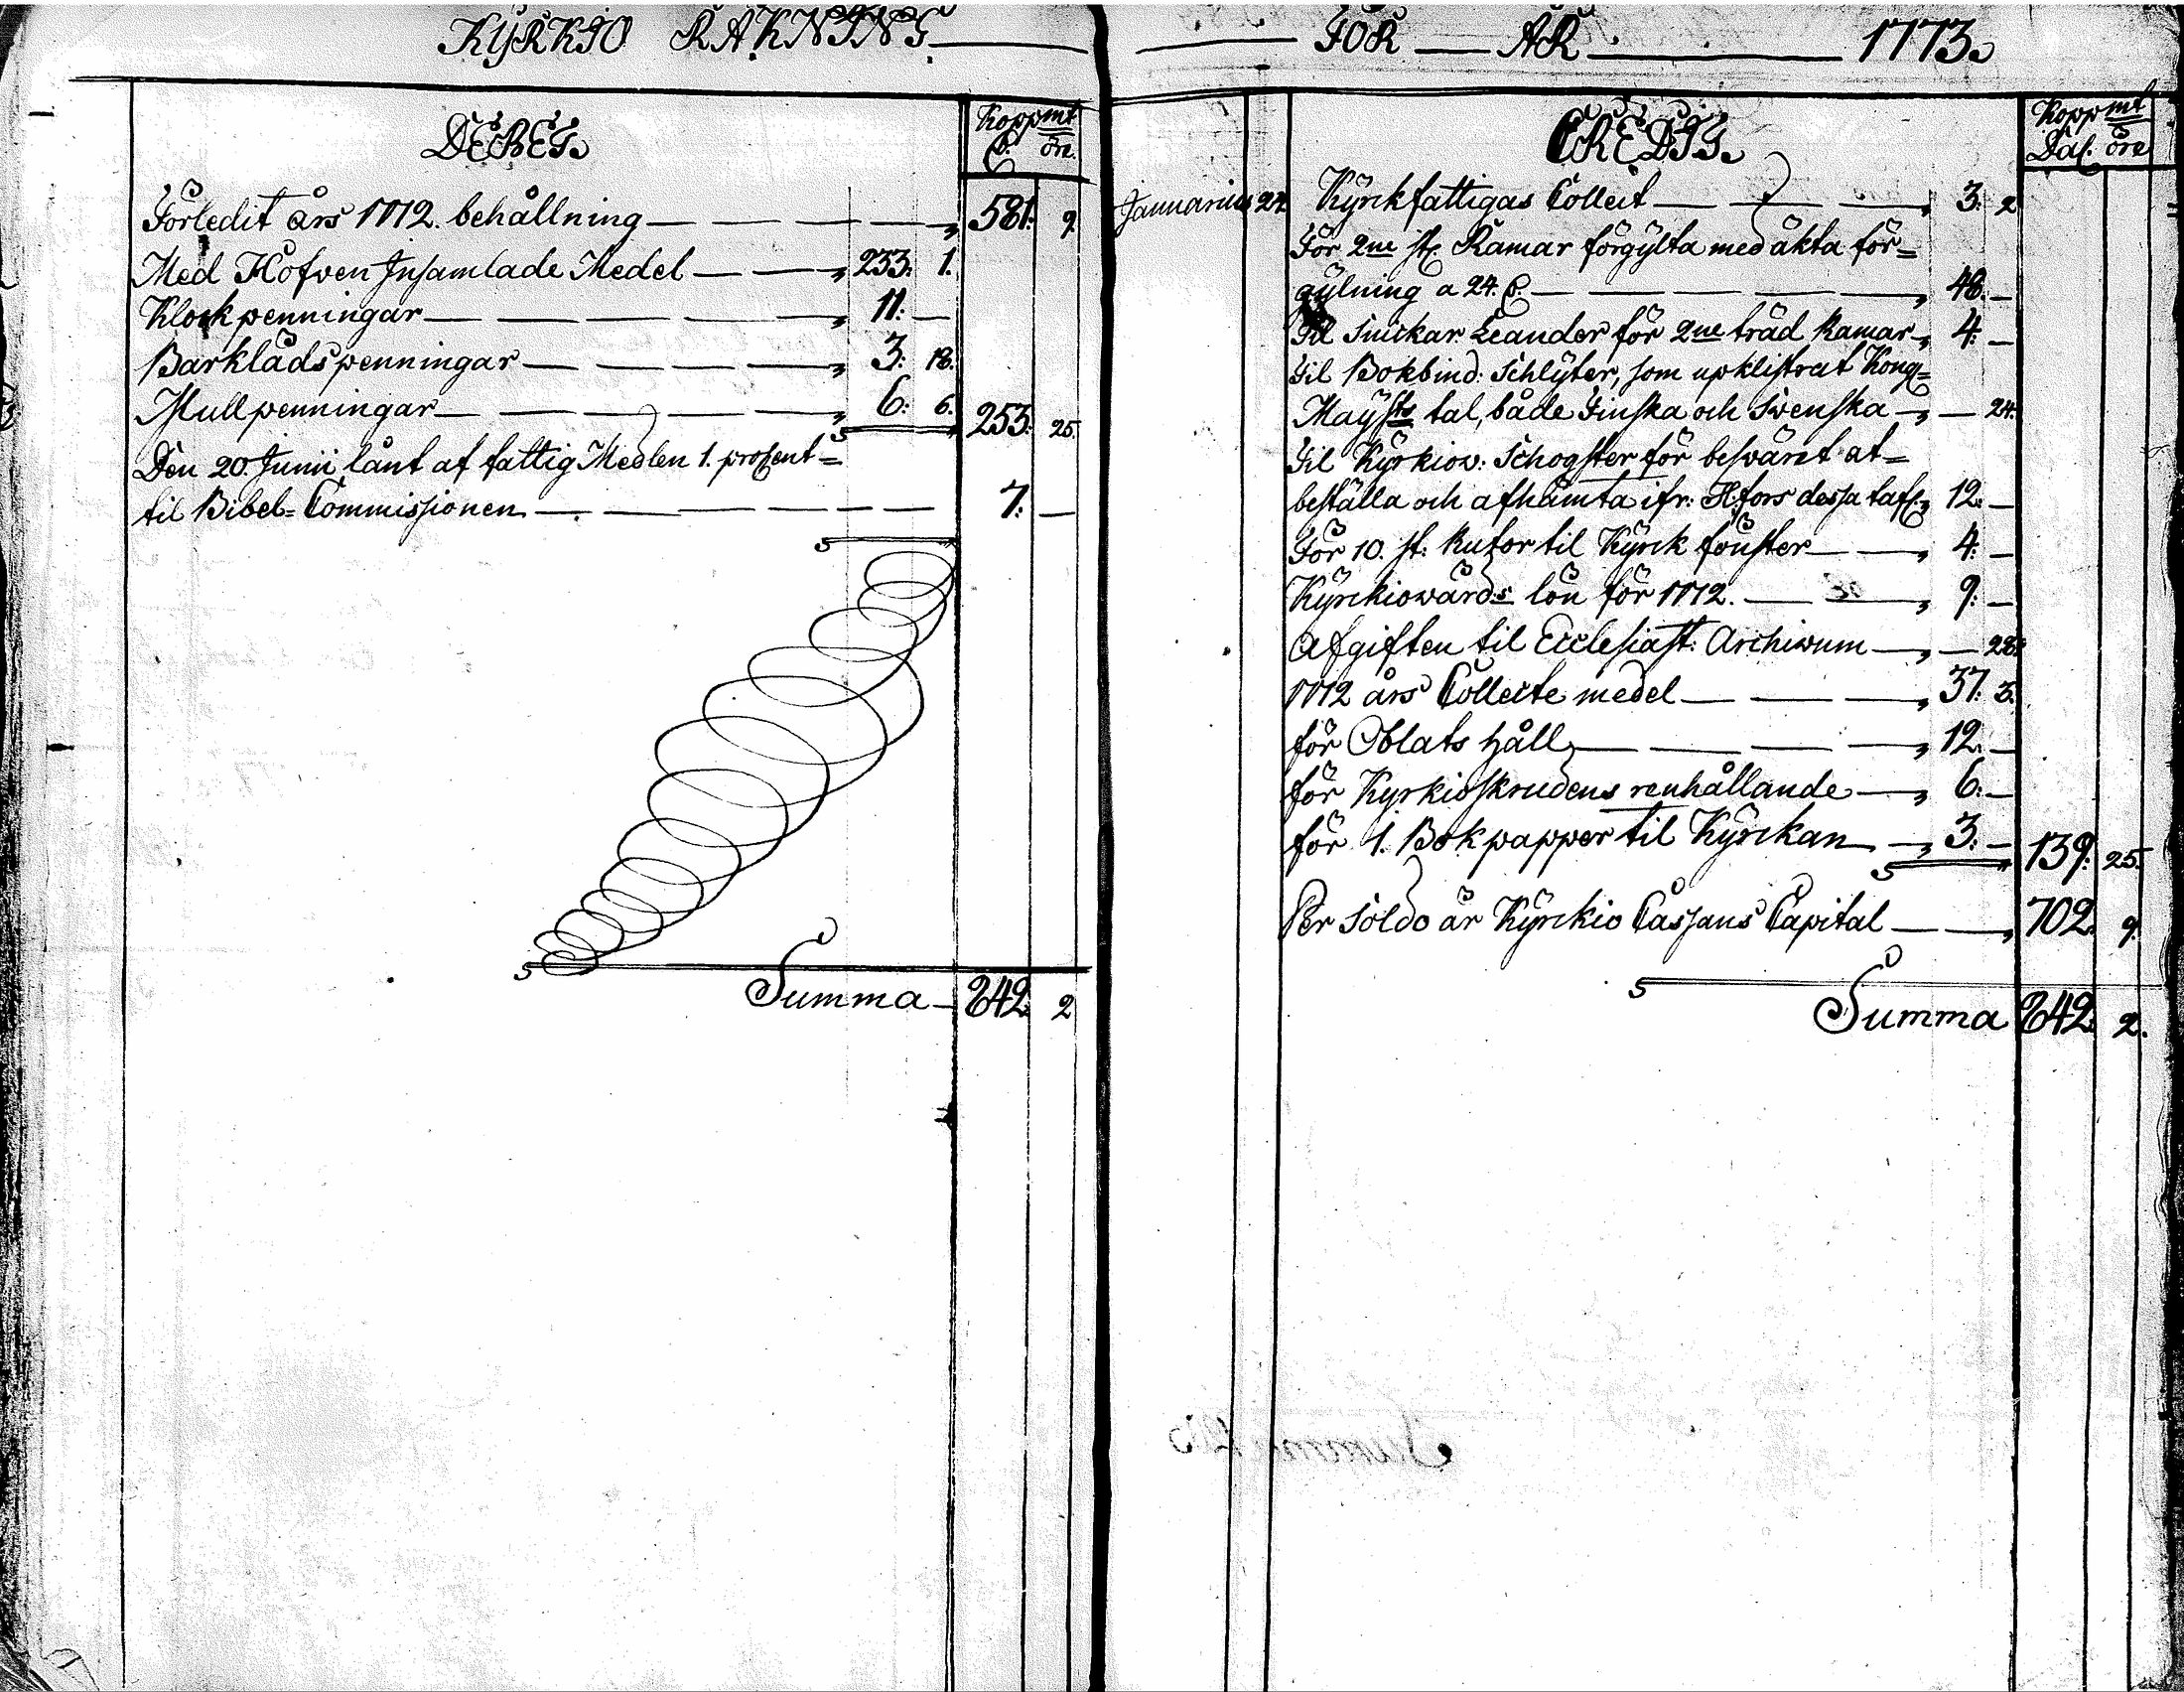 KYRKIO RÄKNING
DEBET.
Koppmt
D. öre.
Förledit års 1772. behållning — 581: 9.
Med Håfven Insamlade Medel — 233: 1.
Klockpenningar — 11: —
Barklädspenningar — 3: 18.
Mullpenningar — 6: 6. 253: 25.
Den 20. Junii lånt af fattig Medlen 1. procent=
til Bibel=Commissionen — 7: —
Summa — 842. 2
FÖR ÅR 1773.
CREDIT.
Koppmt
Dal. öre
Januarius 24 Kyrkfattigas Collect — 3: 2
För 2ne st. Ramar förgylta med äkta för=
gylning a 24. D. — 48. —
Til Snickar: Leander för 2ne träd Ramar — 4: —
Til Bokbind: Schlyter, som upklistrat Kongl
Mayts tal, både Finska och Swenska — — 24.
Til Kyrkiov: Schogster för beswäret at=
beställa och afhämta ifr: H:fors dessa tafl: 12. —
För 10. st: Rutor til Kyrck fönster — 4: —
Kyrckiowärds lön för 1772. — 9: —
Afgiften til Ecclesiast: Archivum — — 28.
1772 års Collecte medel — 37: 3.
för Oblats håll — 12. —
för Kyrkioskrudens renhållande — 6: —
för 1. Bok papper til Kyrckan — 3: — 139: 25.
Per Soldo är Kyrckio Cassans Capital — 702. 9.
Summa 842. 2.